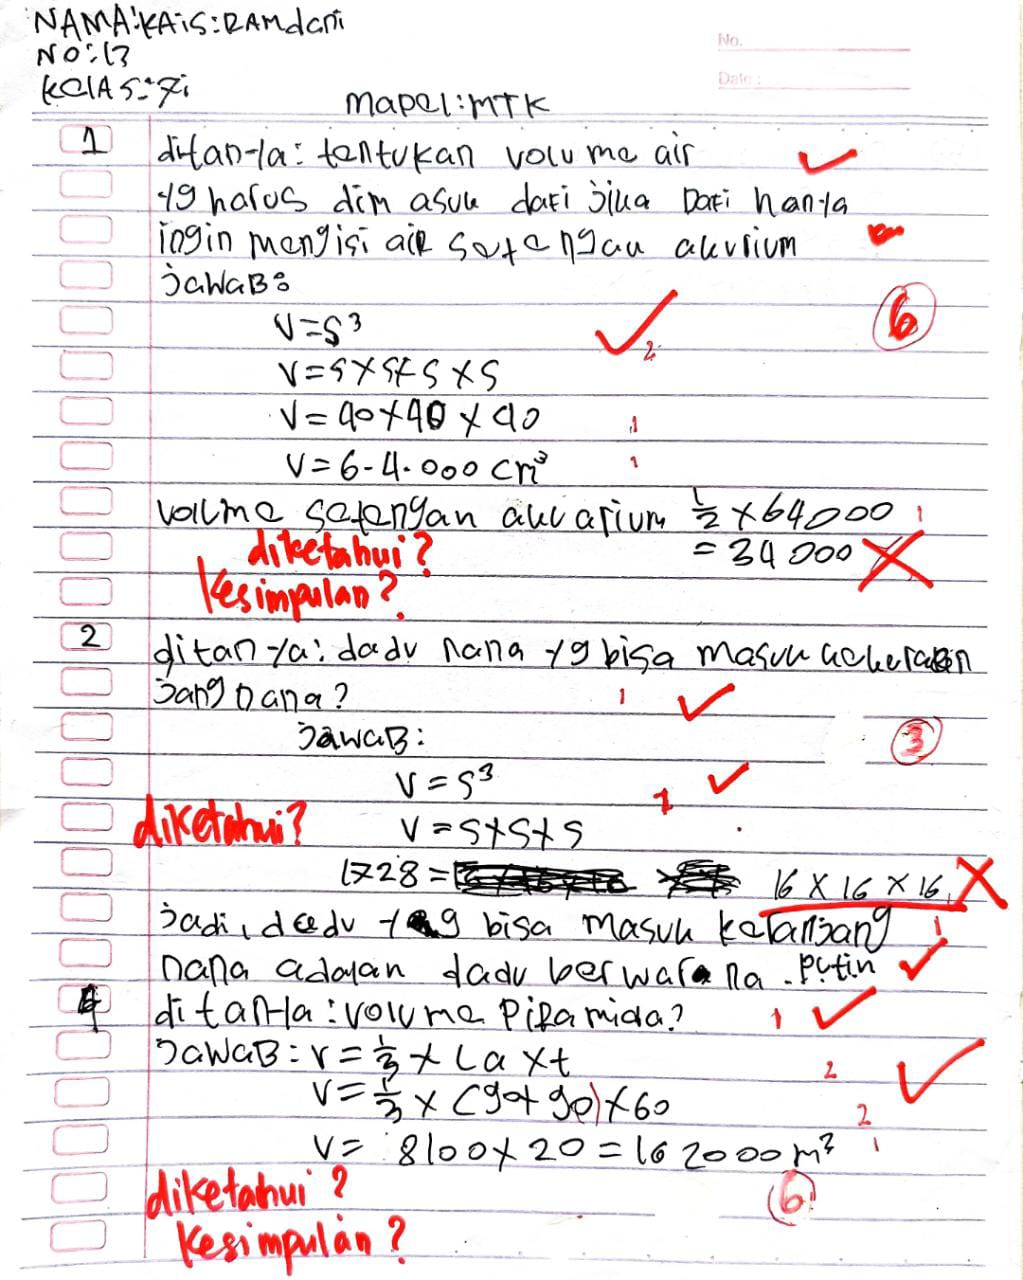 NAMA:KAiS:RAMdani
No.
NO:13
KelAS:7i
Date:
Mapel:MTK
1 ditanya: tentukan volume air
yg harus dim asuk dari jika Dari hanya
ingin mengisi air setengau akurium
jawaB:
6
V=S³
2
V=S×S×S×S
V=40×40×40 1
V=6.4.000 cm³ 1
volime setengan akuarium ½×64000 1
diketahui? = 34000
Kesimpulan?
2 ditanya: dadu nana yg bisa masuk kekeraben
jang nana? 1
jawaB: 3
V=S³
1
diketahui? V=S×S×S
1728= 16×16×16
jadi, dadu yang bisa masuk keranjang 1
nana adalan dadu berwarna.putin
4 ditanya:volume Piramida? 1
jawaB: V=⅓×La×t 2
V=⅓×(90×90)×60 2
V= 8100×20=162000m³ 1
diketahui? 6
Kesimpulan?